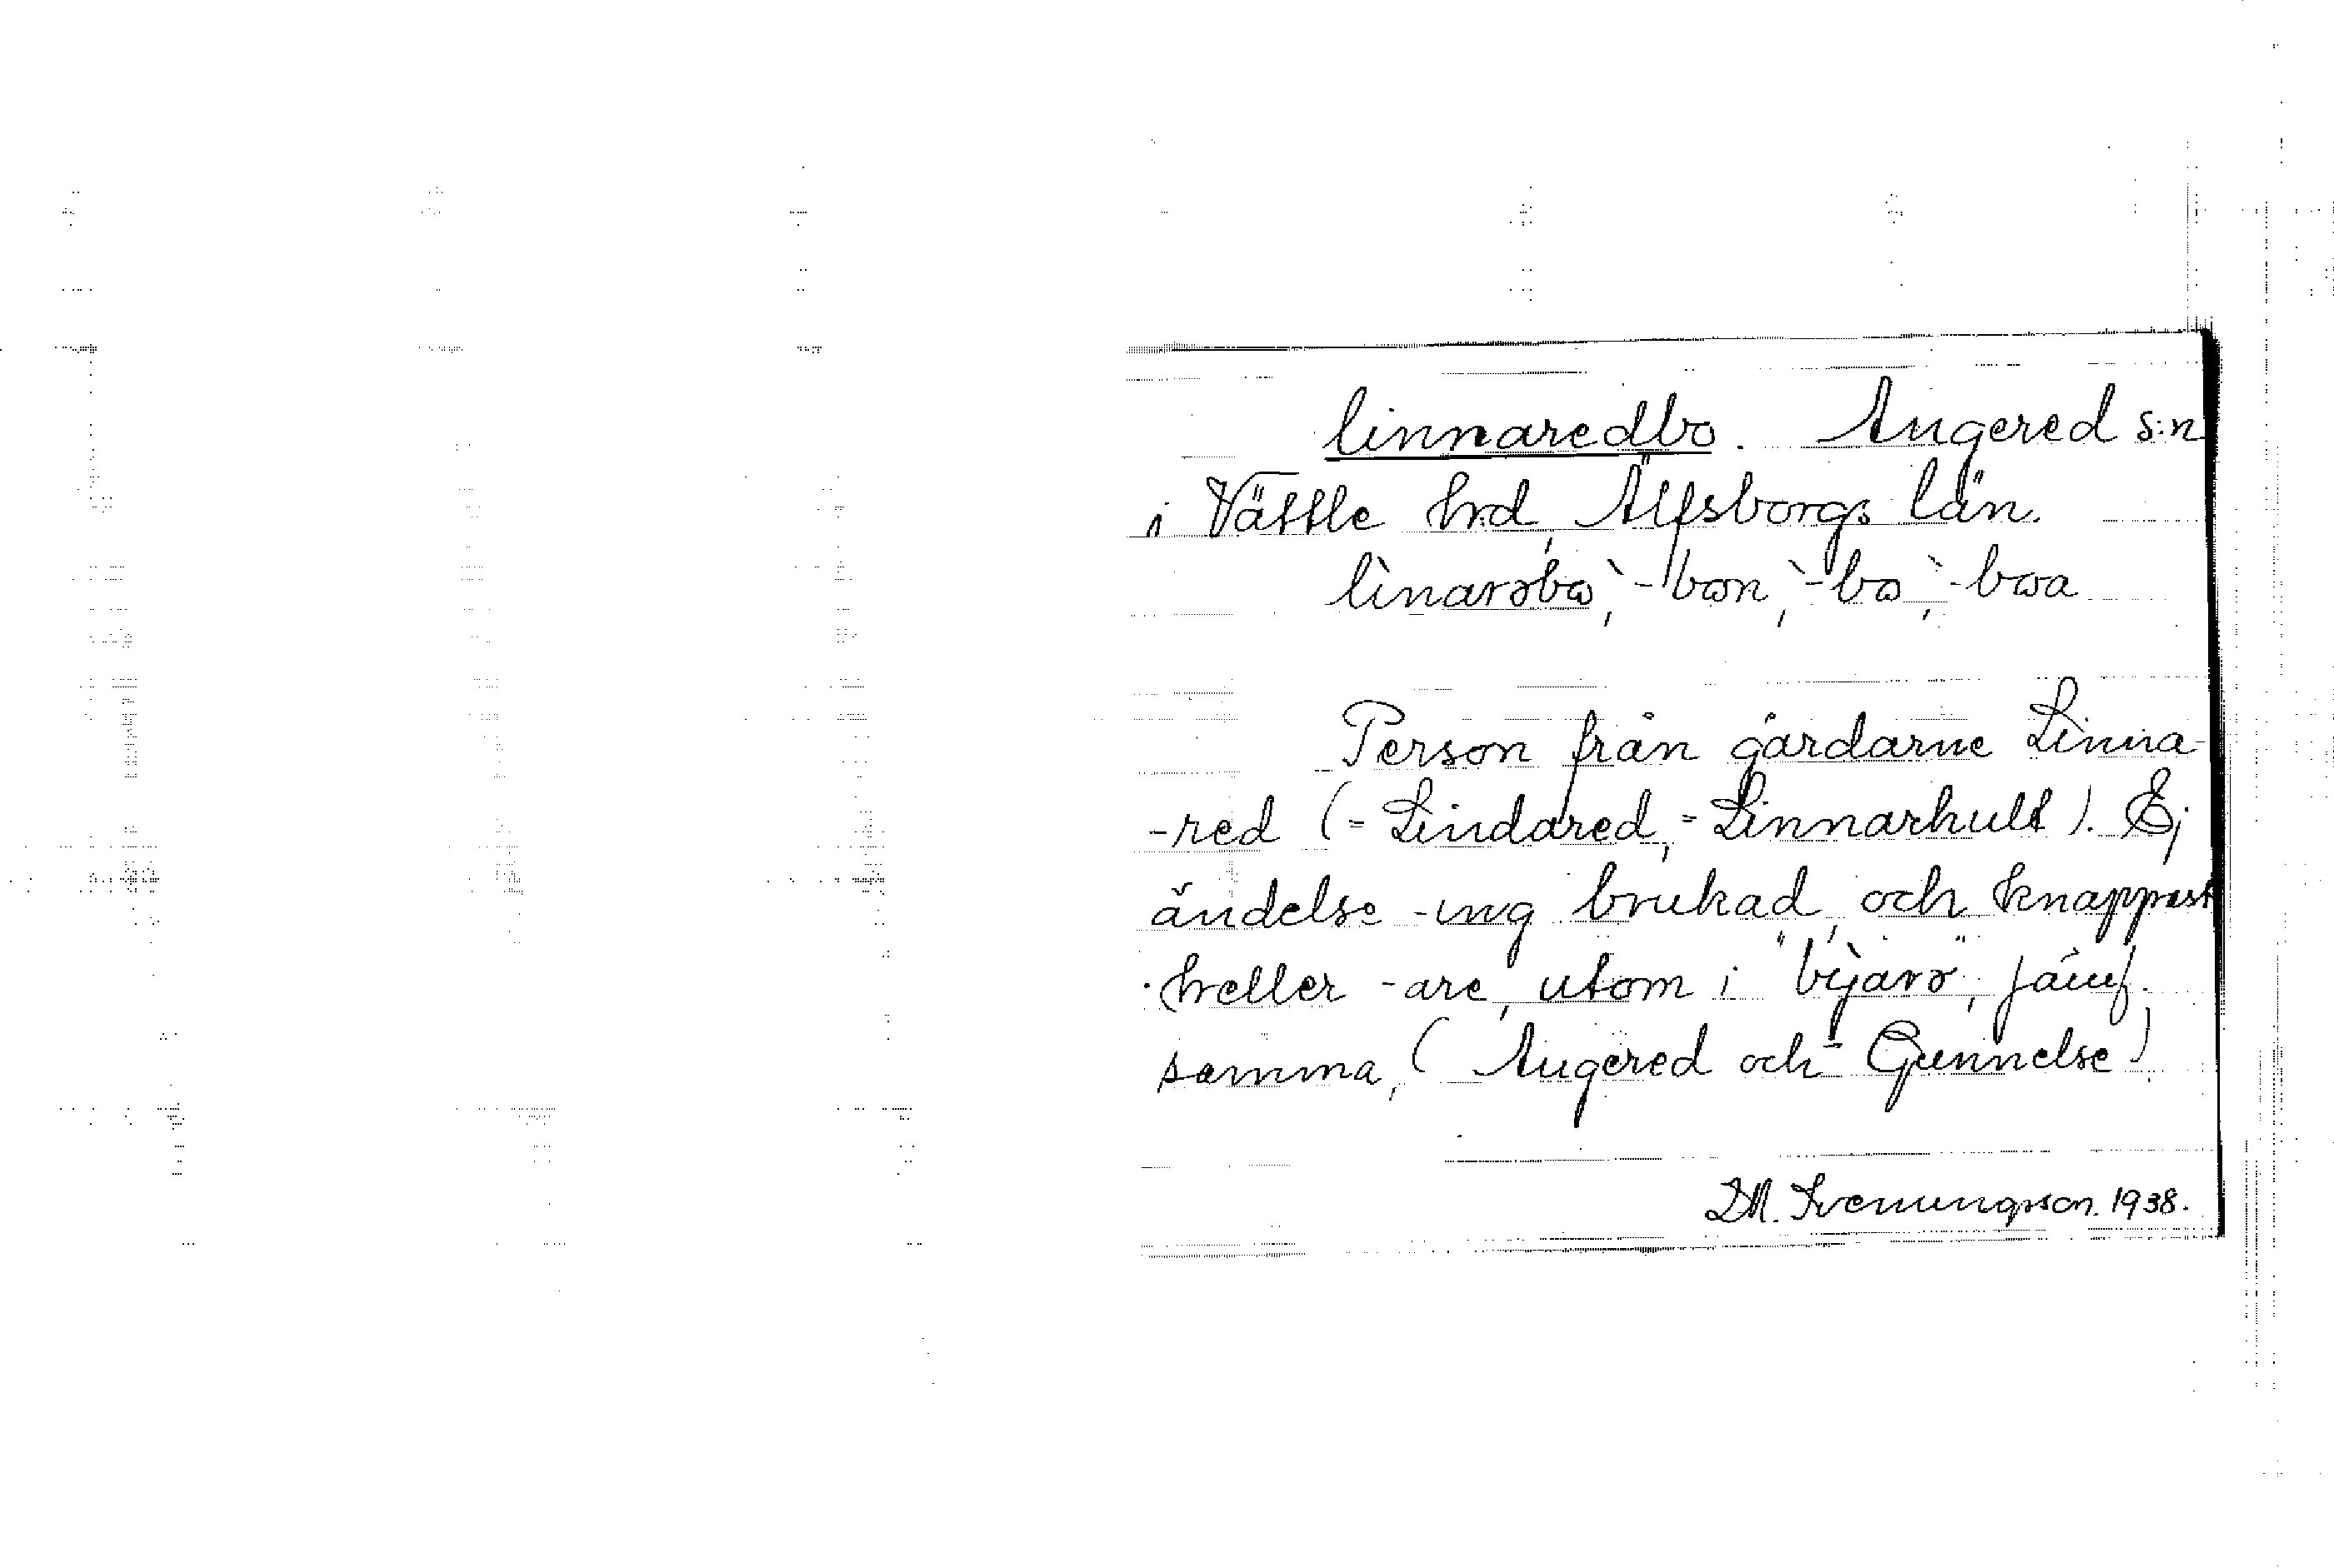 linnaredbo. Angered s:n
i Vättle hrd, Älfsborgs län.
lìnarəbὼ, -bωn, -bω, -bωa
Person från gårdarne Linna-
-red (= Lindared, = Linnarhult). Ej
ändelse -ing brukad, och knappast
heller -are, utom i "bỳjarə", jämf.
samma, (Angered och Gunnelse)
D.M. Svenungsson. 1938.